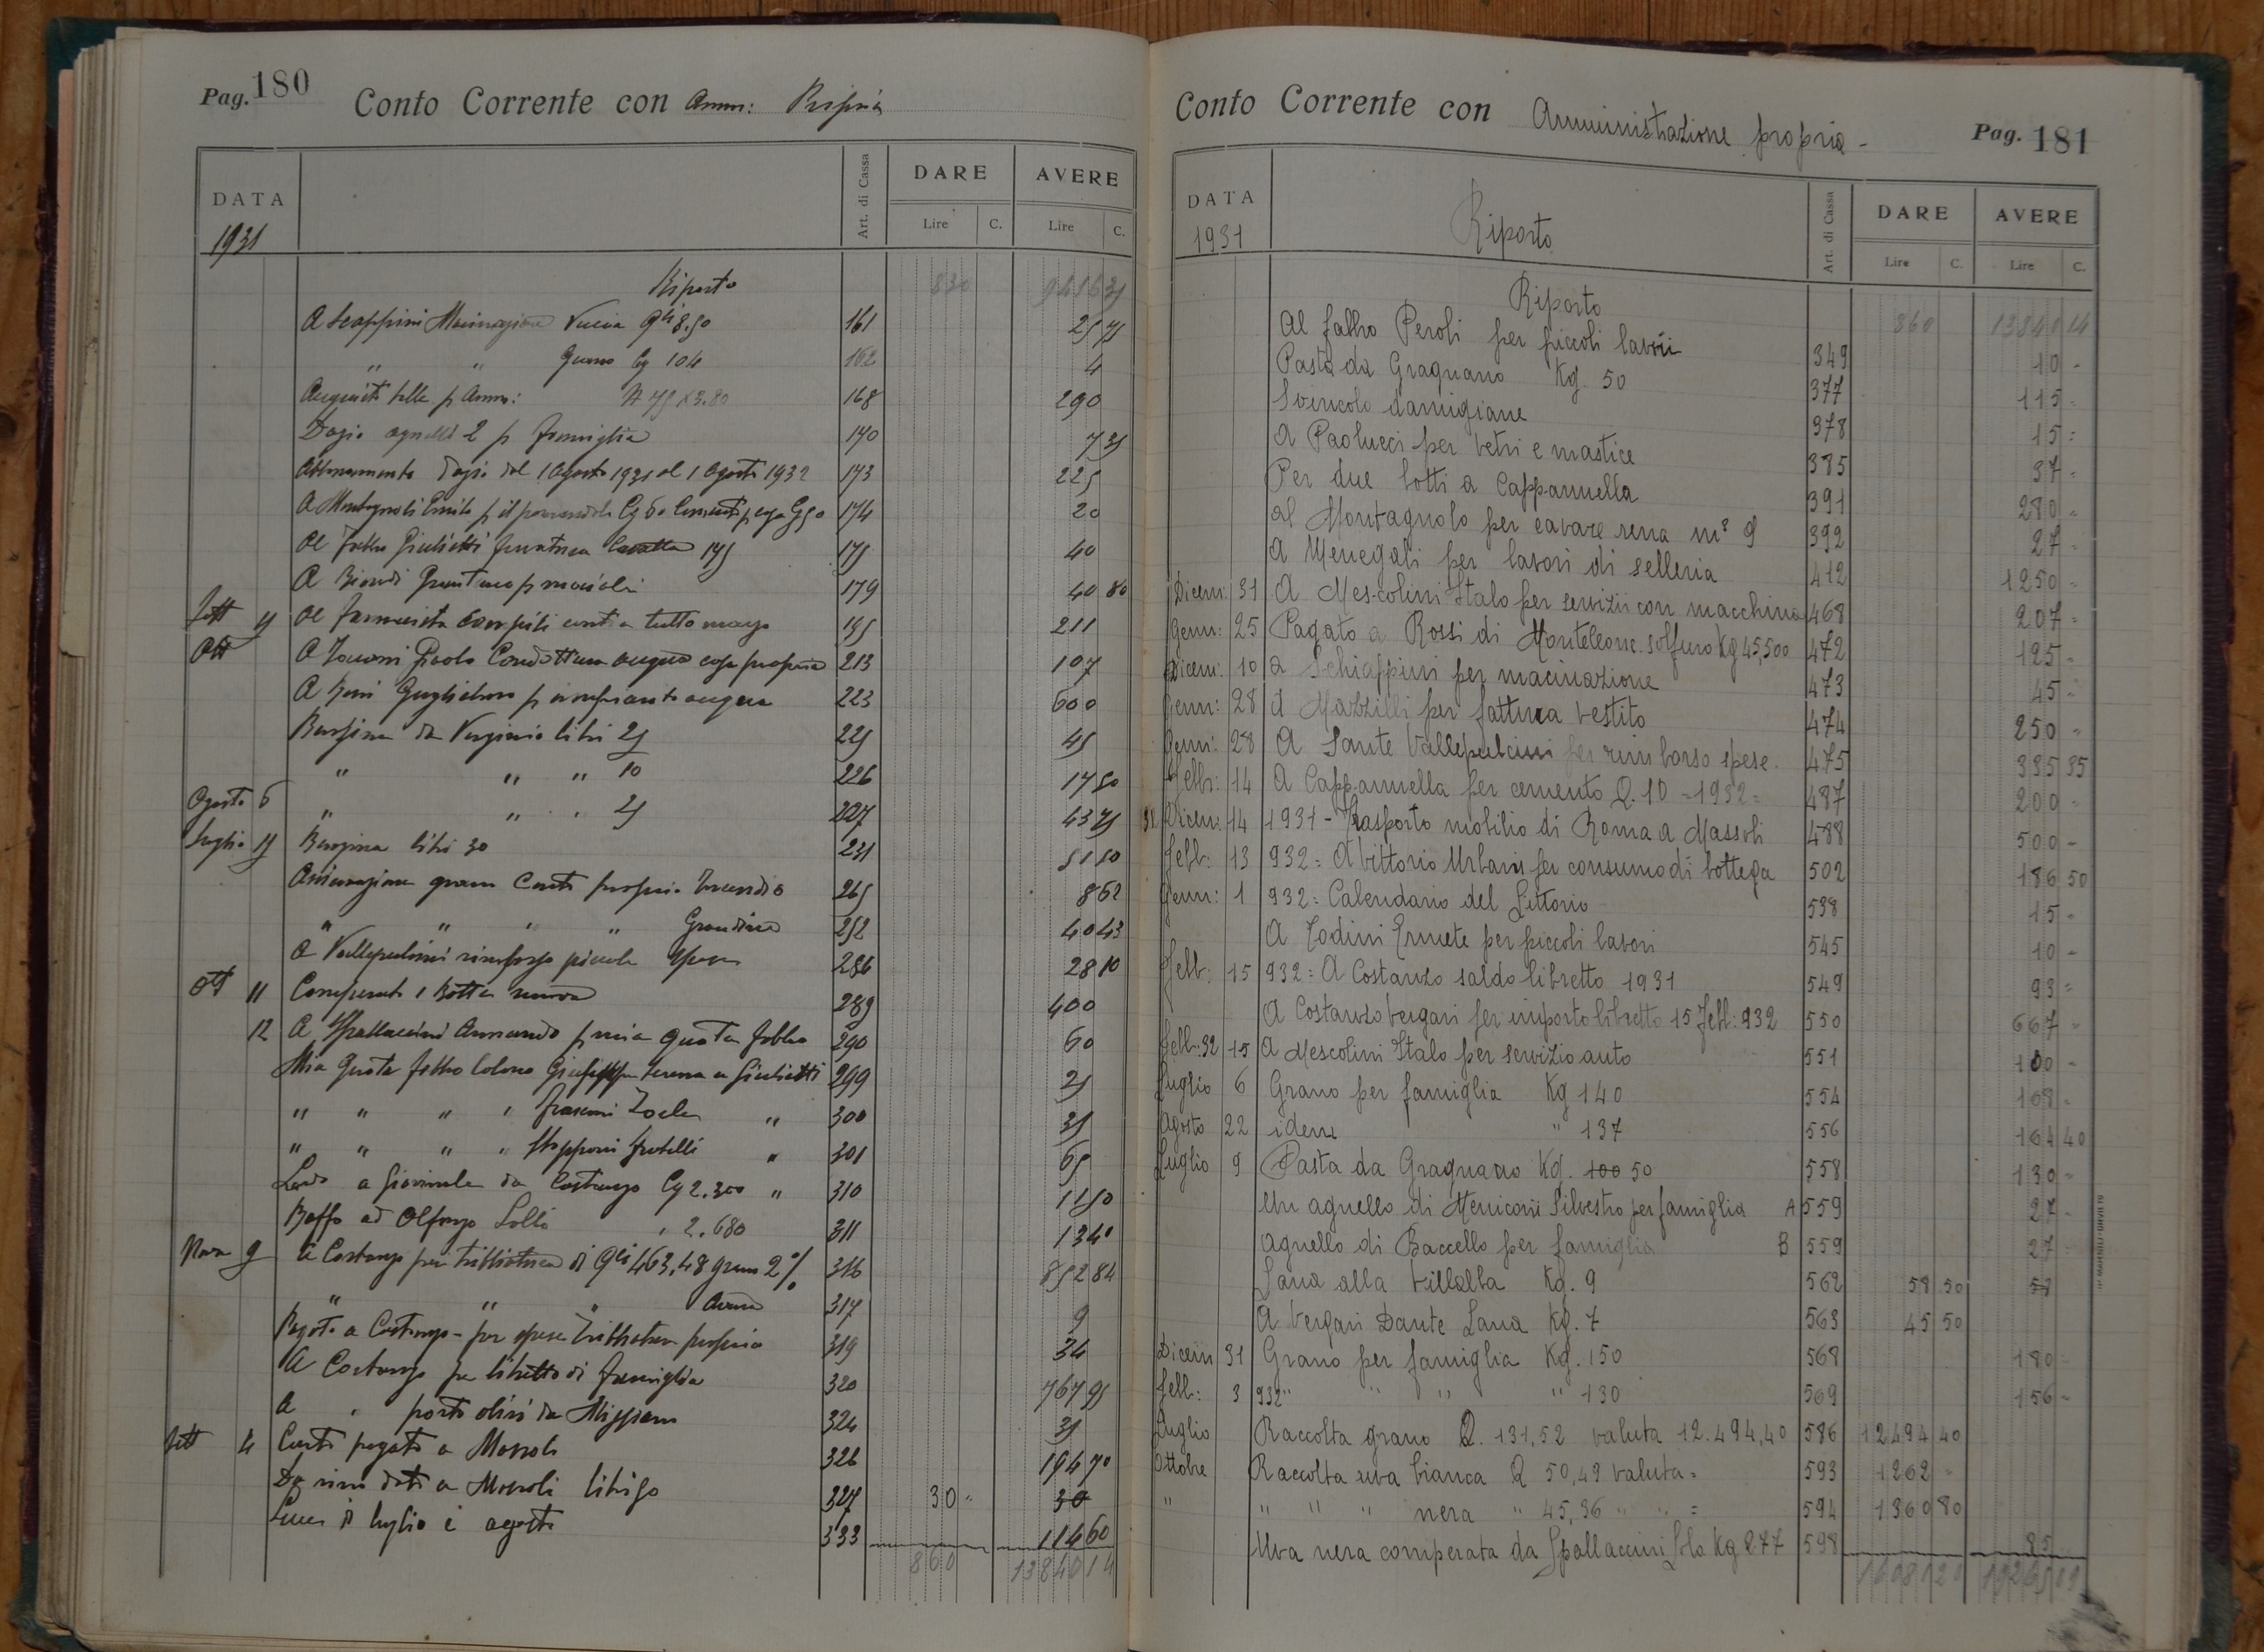 Pag. 180
Conto Corrente con Amm: Propria
DATA
Art. di Cassa
DARE
AVERE
Lire C.
Lire C.
1931
Riporto 830
A Scappini Macinazione 8.50 161 25 75
" " Grano Kg 104 162 4
Acquisto p Amm: 75 x 3.80 168 290
Dazio agnelli 2 p famiglia 170 7 35
Abbonamento dazi dal 1 Agosto 1931 al 1 Agosto 1932 173 225
174 20
Al fabbro Giulietti 175 40
A Biondi 179 40 80
Sett Al farmacista tutto marzo 195 211
Ott A Paolo Conduttura acqua casa propria 213 107
A Guglielmo p impianto acqua 223 600
Benzina da Virginio litri 25 225 45
" " " 10 226 17 50
Agosto 6 " " 25 227 43 75
Luglio 15 Benzina litri 30 231 51 50
Assicurazione grano Conto proprio Incendio 265 8 62
" " " " Grandine 252 40 43
A Vallepulcini rimborso piccole spese 286 28 10
Ott 11 Comperato 1 Botte nuova 289 400
12 A Spallaccini Armando p mia quota fabbro 290 60
Mia quota fabbro colono a Giulietti 299 25
" " " " " 300 35
" " " " Fratelli " 301 65
Lardo a da Costanzo Kg 2.300 " 310 11 50
Baffo ad Alfonso Lolli " 2.680 311 13 40
Nove 9 A Costanzo per trebbiatura di Qli 463,48 grano 2% 316 852 84
" " " Avena 317 9
Pagato a Costanzo - per spese Trebbiatura propria 319 34
A Costanzo per libretto di famiglia 320 767 95
A " porto olivi da 324 35
Sett 4 Conto pagato a Massoli 326 194 70
Da vino dato a Massoli litri 50 327 30 - 30
Luce di luglio e agosto 333 114 60
860 13840 14
Conto Corrente con Amministrazione propria -
Pag. 181
DATA
Riporto
Art. di Cassa
DARE
AVERE
1931
Lire C.
Lire C.
Riporto 860 13840 14
Al fabbro Peroli per piccoli lavori 349 10 -
Pasta da Gragnano Kg. 50 377 115 -
Svincolo damigiane 378 15 =
A Paolucci per vetri e mastice 385 37 =
Per due botti a Cappannella 391 280 =
al Montagnolo per cavare rena m³ 9 392 27 -
A Menegali per lavori di selleria 412 1250 =
Dicem: 31 A Mescolini Italo per servizii con macchina 468 207 =
Genn: 25 Pagato a Rossi di Monteleone solfuro Kg 45,500 472 125 =
Dicem: 10 a Schiappini per macinazione 473 45 =
Genn: 28 A Mazzilli per fattura vestito 474 250 =
Genn: 28 A Sante Vallepulcini per rimborso spese. 475 335 35
Febbr: 14 A Cappannella per cemento Q. 10 - 1932 = 487 200 =
Dicem: 14 1931 - Trasporto mobilio di Roma a Massoli 488 500 -
Febb: 13 932 = A Vittorio Urbani per consumo di bottega 502 186 50
Genn: 1 932 = Calendario del Littorio 538 15 -
A Todini Ermete per piccoli lavori 545 10 -
Febb: 15 932 = A Costanzo saldo libretto 1931 549 93 =
A Costanzo Vergari per importo libretto 15 Febb: 932 550 667 =
Febb: 32 15 A Mescolini Italo per servizio auto 551 100 -
Luglio 6 Grano per famiglia Kg 140 554 168 -
Agosto 22 idem " 137 556 164 40
Luglio 9 Pasta da Gragnano Kg. 100 50 558 130 -
Un agnello di Meniconi Silvestro per famiglia A 559 27 -
Agnello di Baccello per famiglia B 559 27 -
Lana alla Villalba Kg. 9 562 58 50 58
A Vergari Dante Lana Kg. 7 563 45 50
Dicem 31 Grano per famiglia Kg. 150 568 180 -
Febb: 3 932 " " " " 130 569 156 -
Luglio Raccolta grano Q. 131,52 valuta 12.494,40 586 12494 40
Ottobre Raccolta uva bianca Q 50,49 valuta = 593 1262 -
" " " " nera " 45,36 " " = 594 1360 80
Uva nera comperata da Spallaccini Kg 277 598 85